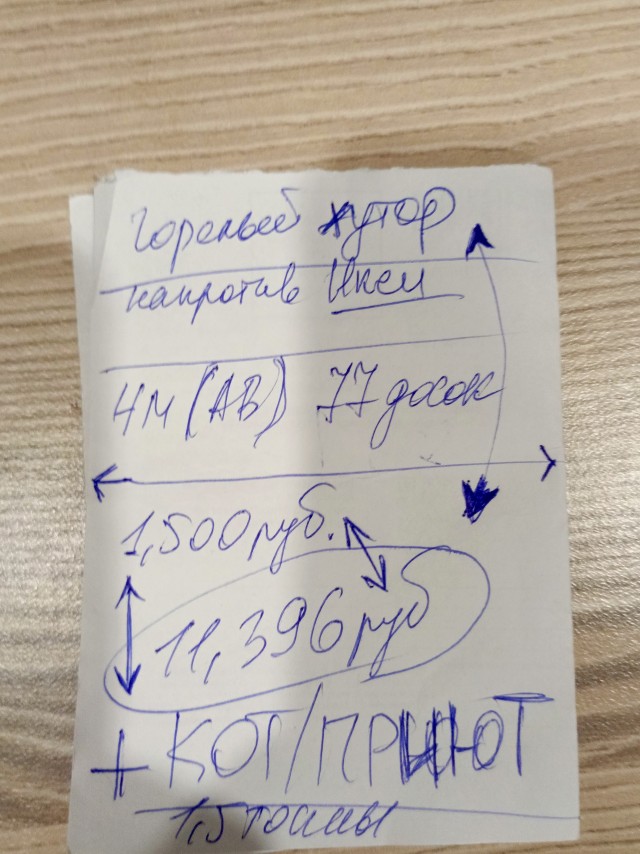 Горелый хутор
напротив Икеи
4м (АВ) 77 досок
1,500 руб.
11,396 руб
+ КОТ/ПРИЮТ
1,5 тонны